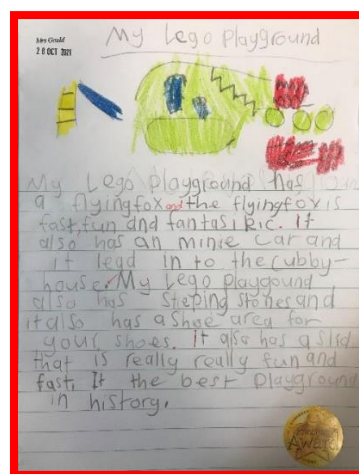 My Lego Playground
Mrs Gould
20 OCT 2021
My Lego Playground has
a flyingfox and the flyingfox is
fast, fun and fantasikic. It
also has an minie car and
it lead in to the cubby-
house. My Lego Playgound
also has steping stones and
it also has a shoe area for
your shoes. It also has a slid
that is really really fun and
fast, It the best playground
in history.
AWARD